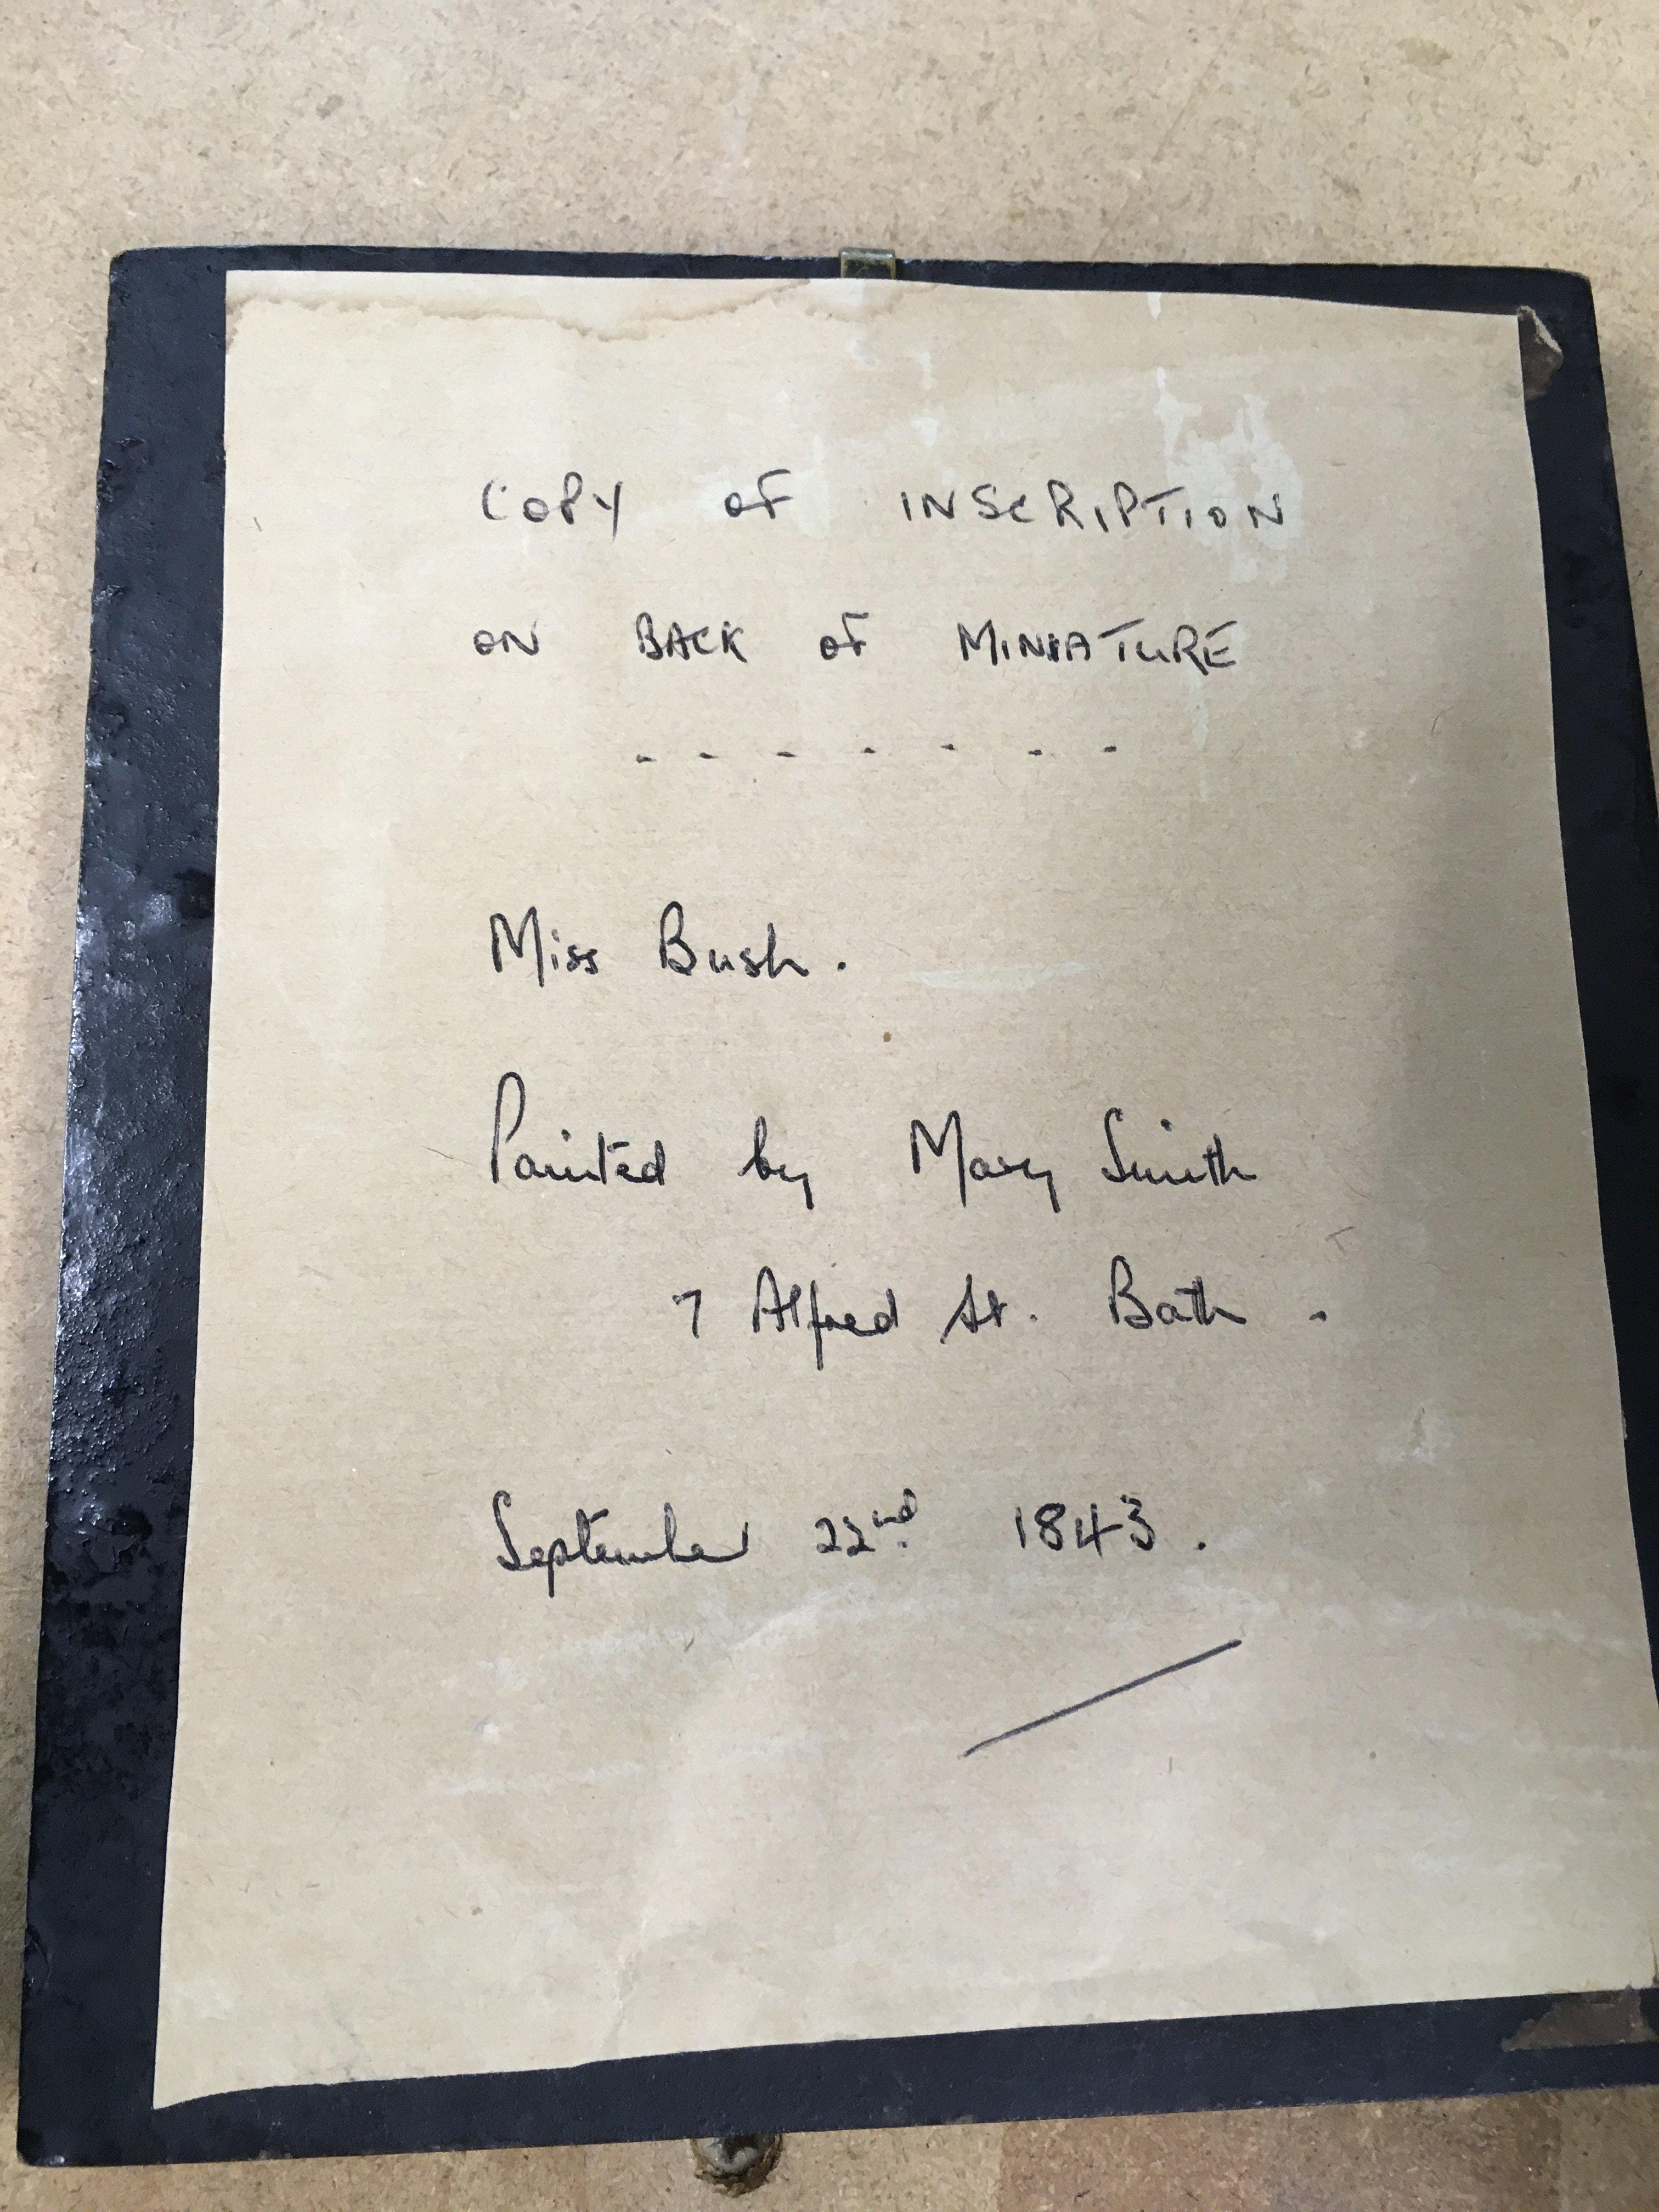 COPY OF INSCRIPTION
ON BACK OF MINIATURE
- - - - - - -
Miss Bush.
Painted by Mary Smith
7 Alfred St. Bath.
September 22nd 1843.